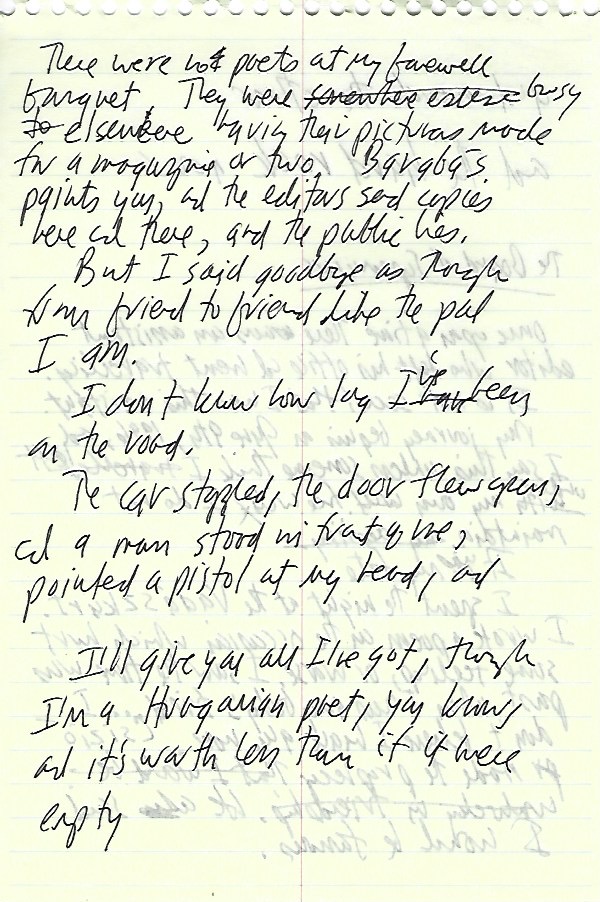 There were not poets at my farewell
banquet. They were somewhere else busy
to elsewhere having their pictures made
for a magazine or two. Barabás
paints you, and the editors send copies
here and there, and the public lies.
But I said goodbye as though
from friend to friend like the pal
I am.
I don't know how long I've been
on the road.
The car stopped, the door flew open,
and a man stood in front of me,
pointed a pistol at my head, and
I'll give you all I've got, though
I'm a Hungarian poet, you know,
and it's worth less than if it were
empty